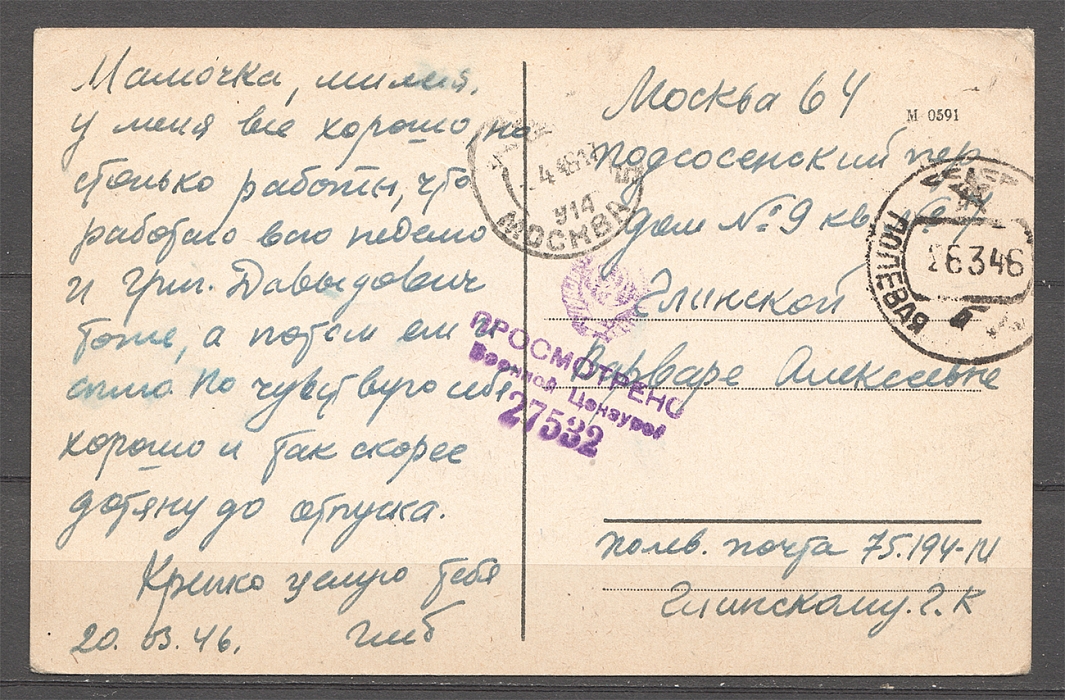 Мамочка, милая,
у меня все хорошо, на
столько работы, что
работаю всю неделю
и Григ. Давыдович
тоже, а потом ем и
сплю. Но чувствую себя
хорошо и так скорее
дотяну до отпуска.
Крепко целую тебя
20.03.46. Глеб
Москва 64
М 0591
Подсосенский пер
дом №9 кв.
Глинской
Варваре Алексеевне
полев. почта 75.194-
Глинскому. Г. К
4 46
914
МОСКВА
ПОЛЕВАЯ
26 3 46
ПРОСМОТРЕНО
Военной Цензурой
27532